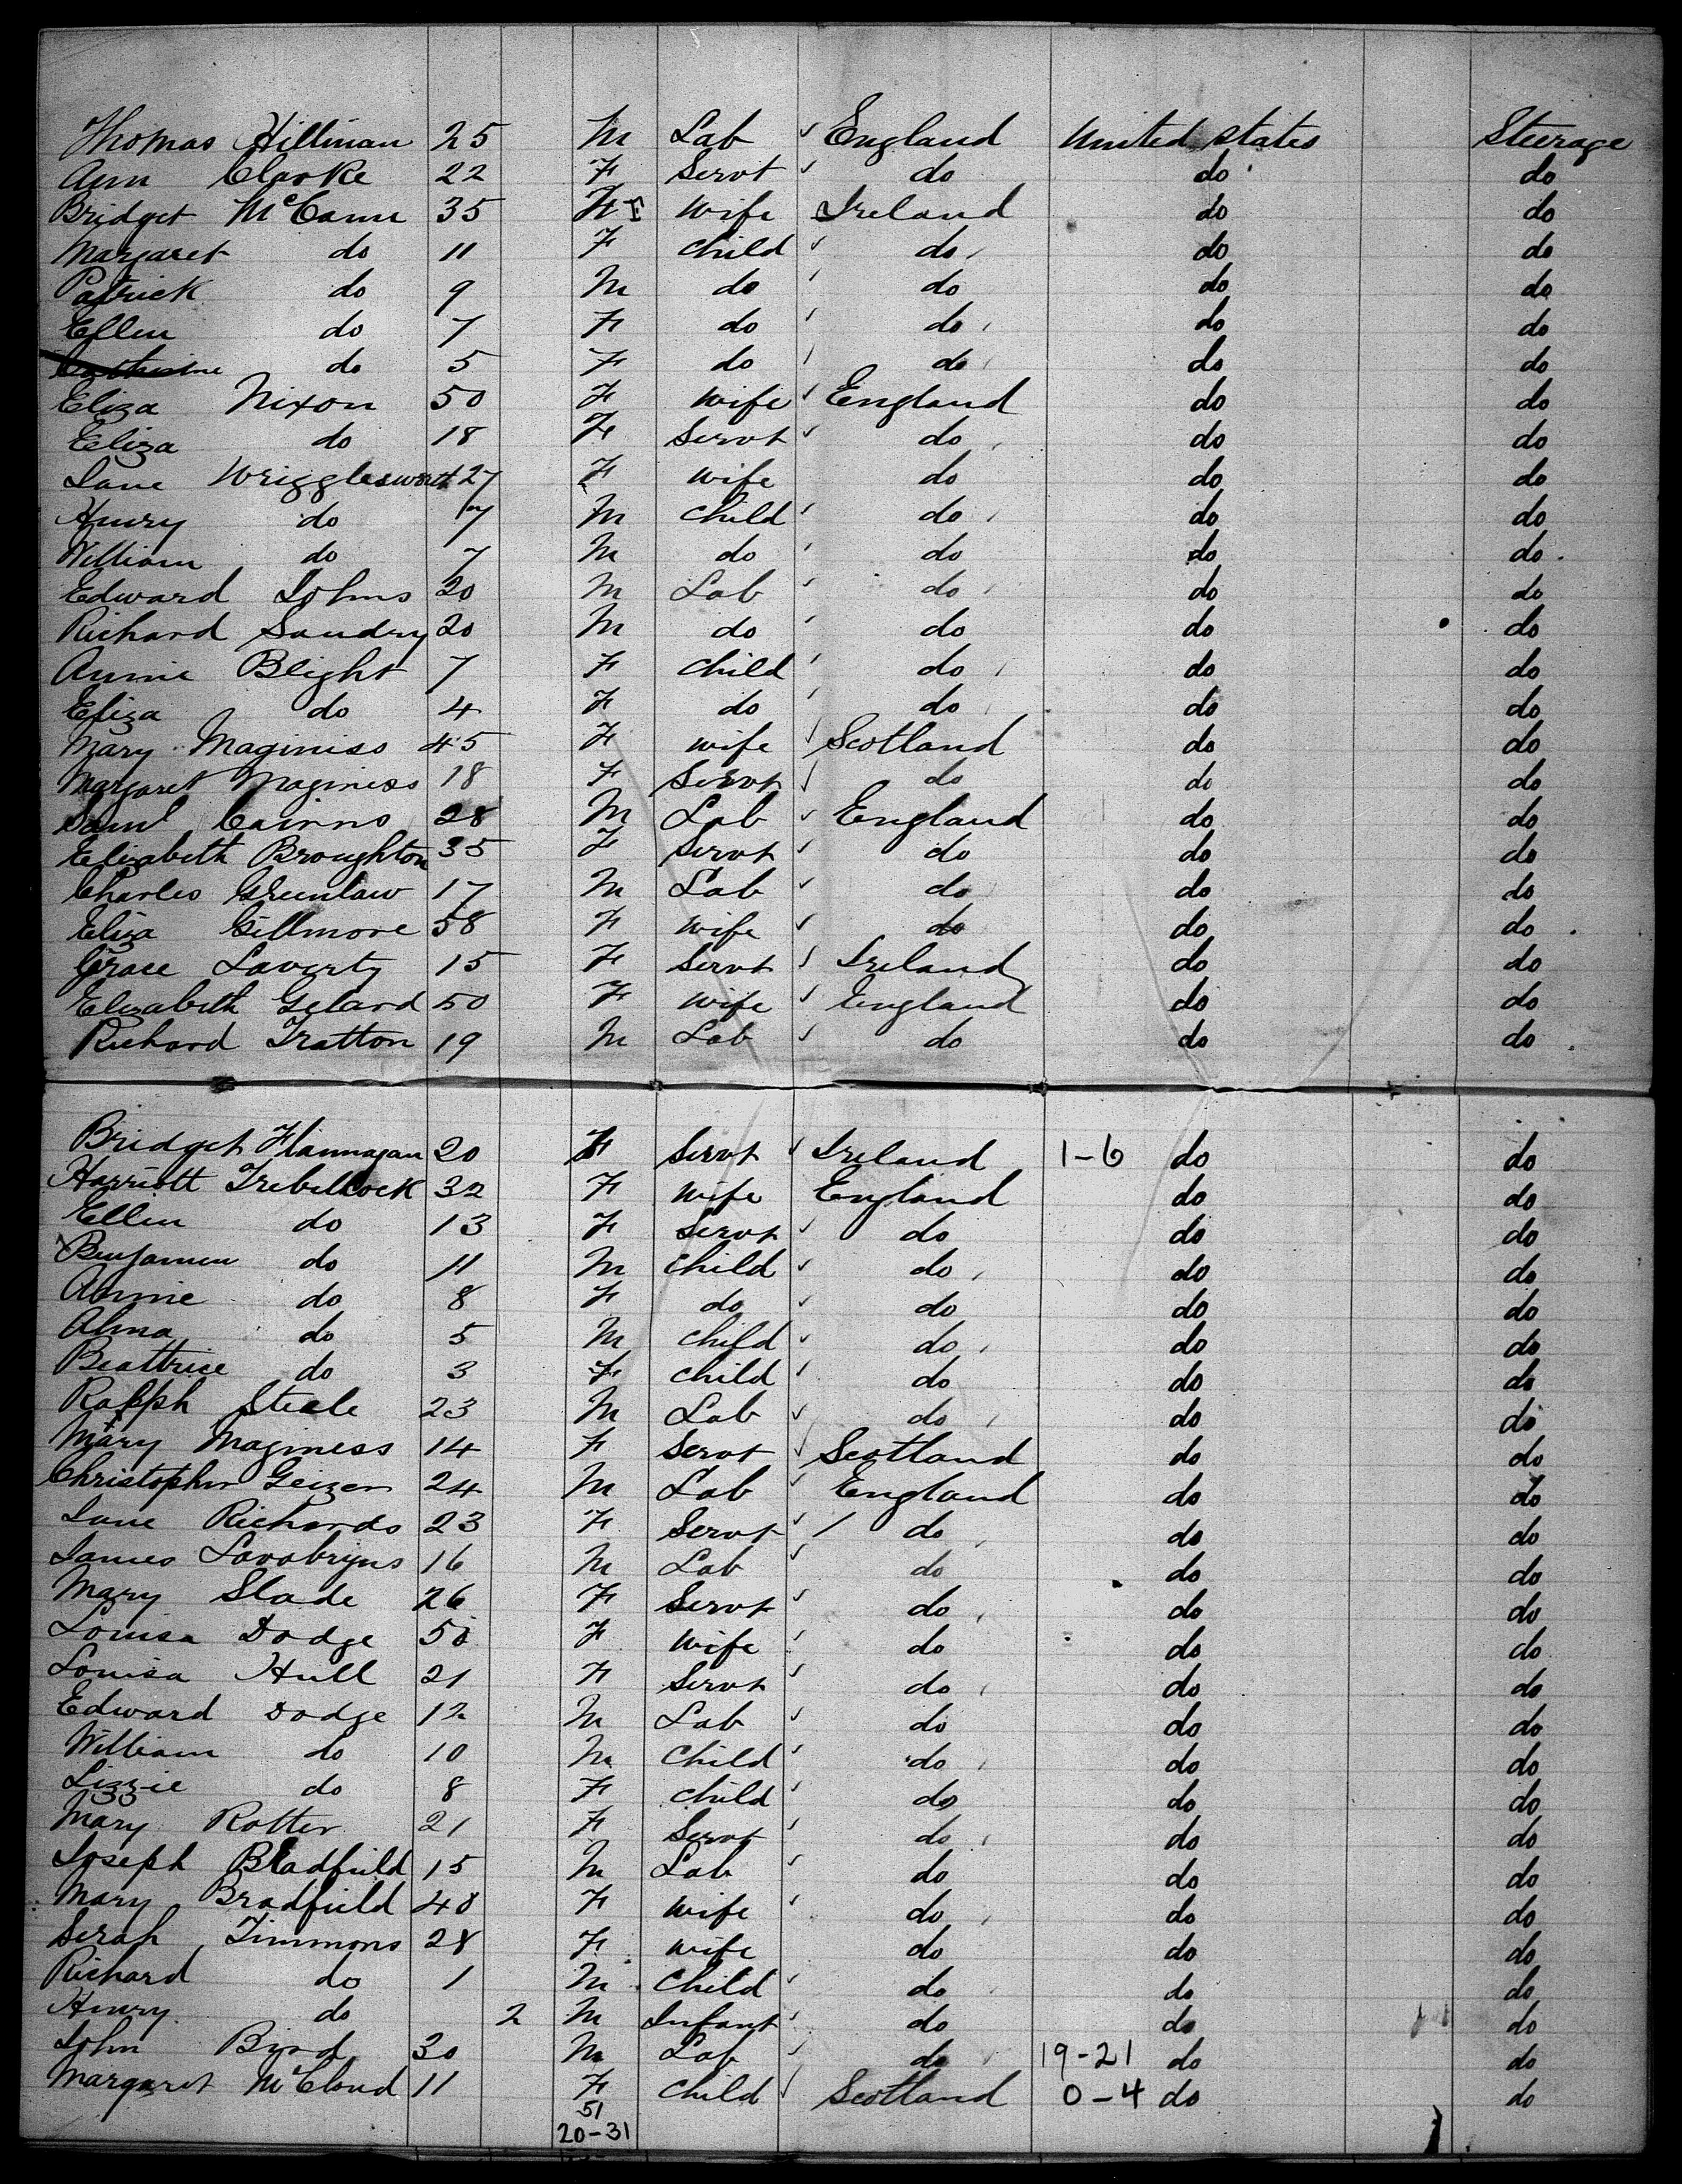 Thomas Hillman 25 M Lab ✓ England United States Steerage
Ann Clarke 22 F Servt ✓ do do do
Bridget McCann 35 F F Wife Ireland do do
Margaret do 11 F Child ✓ do do do
Patrick do 9 M do do do do
Ellen do 7 F do do do do
Catherine do 5 F do do do do
Eliza Nixon 50 F Wife ✓ England do do
Eliza do 18 F Servt ✓ do do do
Jane Wrigglesworth 27 F Wife do do do
Henry do 7 M Child do do do
William do 7 M do do do do
Edward Johns 20 M Lab do do do
Richard Sandry 20 M do do do do
Annie Blight 7 F Child do do do
Eliza do 4 F do do do do
Mary Maginiss 45 F Wife ✓ Scotland do do
Margaret Maginess 18 F Servt ✓ do do do
Saml Cairns 28 M Lab ✓ England do do
Elizabeth Broughton 35 F Servt ✓ do do do
Charles Greenlaw 17 M Lab ✓ do do do
Eliza Gillmore 58 F Wife ✓ do do do
Grace Laverty 15 F Servt ✓ Ireland do do
Elizabeth Gelard 50 F Wife ✓ England do do
Richard Tratton 19 M Lab ✓ do do do
Bridget Flannagan 20 F Servt ✓ Ireland 1-6 do do
Harriott Trebilcock 32 F Wife England do do
Ellen do 13 F Servt ✓ do do do
Benjamen do 11 M Child ✓ do do do
Annie do 8 F do ✓ do do do
Alma do 5 M Child ✓ do do do
Beattrice do 3 F Child ✓ do do do
Ralph Steele 23 M Lab ✓ do do do
Mary Maginess 14 F Servt ✓ Scotland do do
Christopher Geizer 24 M Lab ✓ England do do
Jane Richards 23 F Servt ✓ / do do do
James 16 M Lab ✓ do do do
Mary Slade 26 F Servt ✓ do do do
Louisa Dodge 50 F Wife do do do
Louisa Hull 21 F Servt ✓ do do do
Edward Dodge 12 M Lab ✓ do do do
William do 10 M Child ✓ do do do
Lizzie do 8 F Child ✓ do do do
Mary Rotter 21 F Servt do do do
Joseph Bladfield 15 M Lab ✓ do do do
Mary Bradfield 48 F Wife do do do
Serah Timmons 28 F Wife do do do
Richard do 1 M Child ✓ do do do
Henry do 2 M Infant do do do
John Bird 30 M Lab ✓ do 19-21 do do
Margaret McCloud 11 F Child ✓ Scotland 0-4 do do
51
20-31